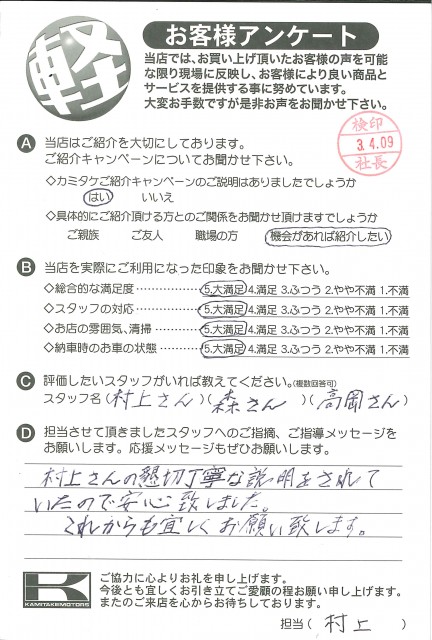 軽
お客様アンケート
当店では、お買い上げ頂いたお客様の声を可能
な限り現場に反映し、お客様により良い商品と
サービスを提供する事に努めています。
大変お手数ですが是非お声をお聞かせ下さい。
検印
3.4.09
社長
A 当店はご紹介を大切にしております。
ご紹介キャンペーンについてお聞かせ下さい。
◇カミタケご紹介キャンペーンのご説明はありましたでしょうか
はい いいえ
◇具体的にご紹介頂ける方とのご関係をお聞かせ頂けますでしょうか
ご親族 ご友人 職場の方 機会があれば紹介したい
B 当店を実際にご利用になった印象をお聞かせ下さい。
◇総合的な満足度 5.大満足 4.満足 3.ふつう 2.やや不満 1.不満
◇スタッフの対応 5.大満足 4.満足 3.ふつう 2.やや不満 1.不満
◇お店の雰囲気、清掃 5.大満足 4.満足 3.ふつう 2.やや不満 1.不満
◇納車時のお車の状態 5.大満足 4.満足 3.ふつう 2.やや不満 1.不満
C 評価したいスタッフがいれば教えてください。(複数回答可)
スタッフ名(村上さん)(森さん)(高岡さん)
D 担当させて頂きましたスタッフへのご指摘、ご指導メッセージを
お願いします。応援メッセージもぜひお願いします。
村上さんの懇切丁寧な説明をされて
いたので安心致しました。
これからも宜しくお願い致します。
K
KAMITAKEMOTORS
ご協力に心よりお礼を申し上げます。
今後とも宜しくお引き立てご愛顧の程お願い申し上げます。
またのご来店を心からお待ちしております。
担当(村上)